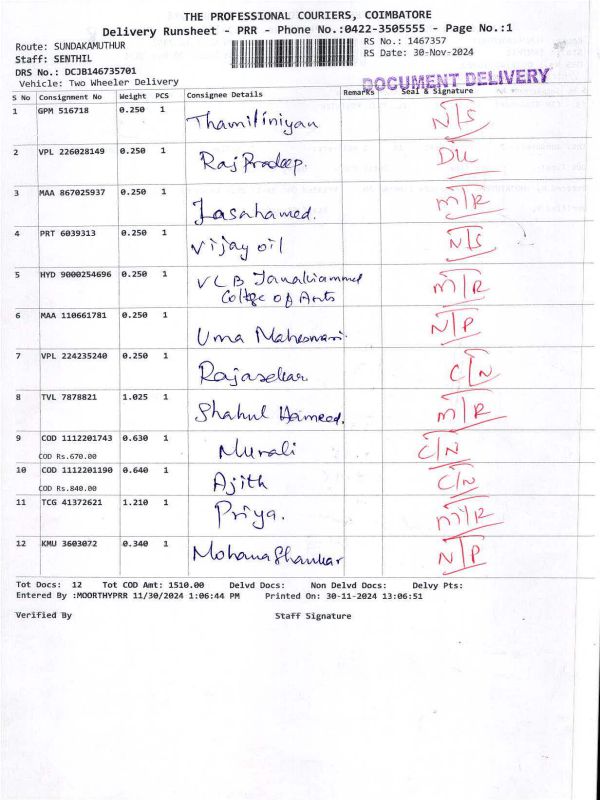 THE PROFESSIONAL COURIERS, COIMBATORE
Delivery Runsheet - PRR - Phone No.:0422-3505555 - Page No.:1
Route: SUNDAKAMUTHUR RS No.: 1467357
Staff: SENTHIL RS Date: 30-Nov-2024
DRS No.: DCJB146735701
Vehicle: Two Wheeler Delivery DOCUMENT DELIVERY
S No Consignment No Weight PCS Consignee Details Remarks Seal & Signature
1 GPM 516718 0.250 1 Thamiliniyan N/S
2 VPL 226028149 0.250 1 Raj Pradeep. DL
3 MAA 867025937 0.250 1 Jasahamed. M/R
4 PRT 6039313 0.250 1 Vijay oil N/S
5 HYD 9000254696 0.250 1 VLB Janakiammal M/R
College of Arts
6 MAA 110661781 0.250 1 Uma Maheswari. N/P
7 VPL 224235240 0.250 1 Rajasekar. C/N
8 TVL 7878821 1.025 1 Shahul Hameed. M/R
9 COD 1112201743 0.630 1 Murali C/N
COD Rs.670.00
10 COD 1112201190 0.640 1 Ajith C/N
COD Rs.840.00
11 TCG 41372621 1.210 1 Priya. M/R
12 KMU 3603072 0.340 1 Mohana Shankar N/P
Tot Docs: 12 Tot COD Amt: 1510.00 Delvd Docs: Non Delvd Docs: Delvy Pts:
Entered By :MOORTHYPRR 11/30/2024 1:06:44 PM Printed On: 30-11-2024 13:06:51
Verified By Staff Signature